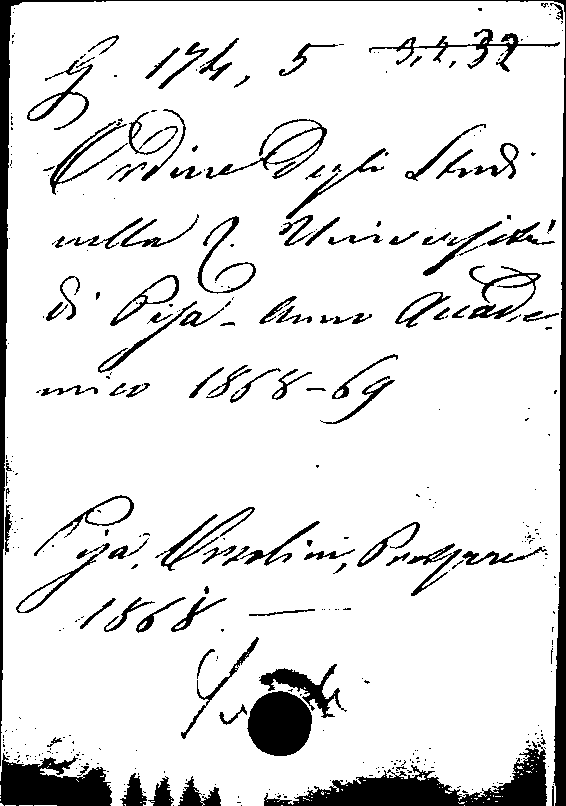 G. 174, 5 3,2,32
Ordine degli Studi
nella R. Università
di Pisa - Anno Accade-
mico 1868-69
Pisa, Orsolini, Prosperi
1868